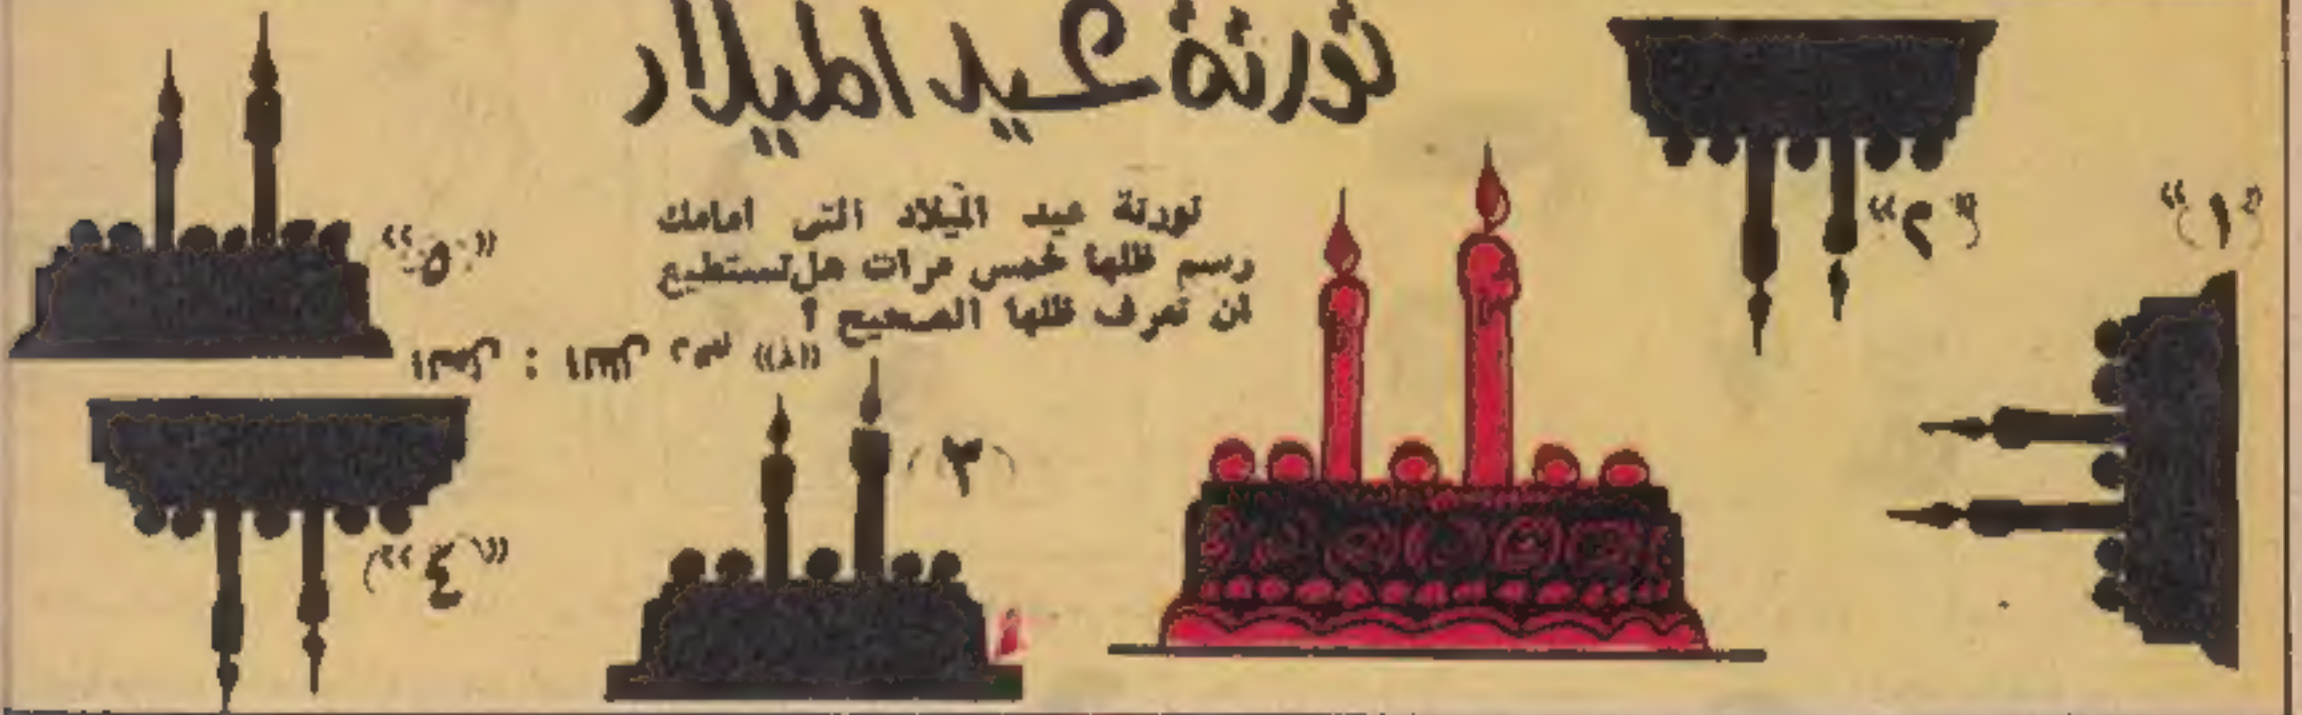 تورتة عيد الميلاد
تورتة عيد الميلاد التى امامك
رسم ظلها خمس مرات هل تستطيع
ان تعرف ظلها الصحيح ؟
«١»
«٢»
(٣)
«٤»
«٥»